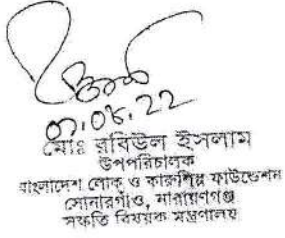 ০৭.০৮.22
মোঃ রবিউল ইসলাম
উপপরিচালক
বাংলাদেশ লোক ও কারুশিল্প ফাউন্ডেশন
সোনারগাঁও, নারায়ণগঞ্জ
সংস্কৃতি বিষয়ক মন্ত্রণালয়